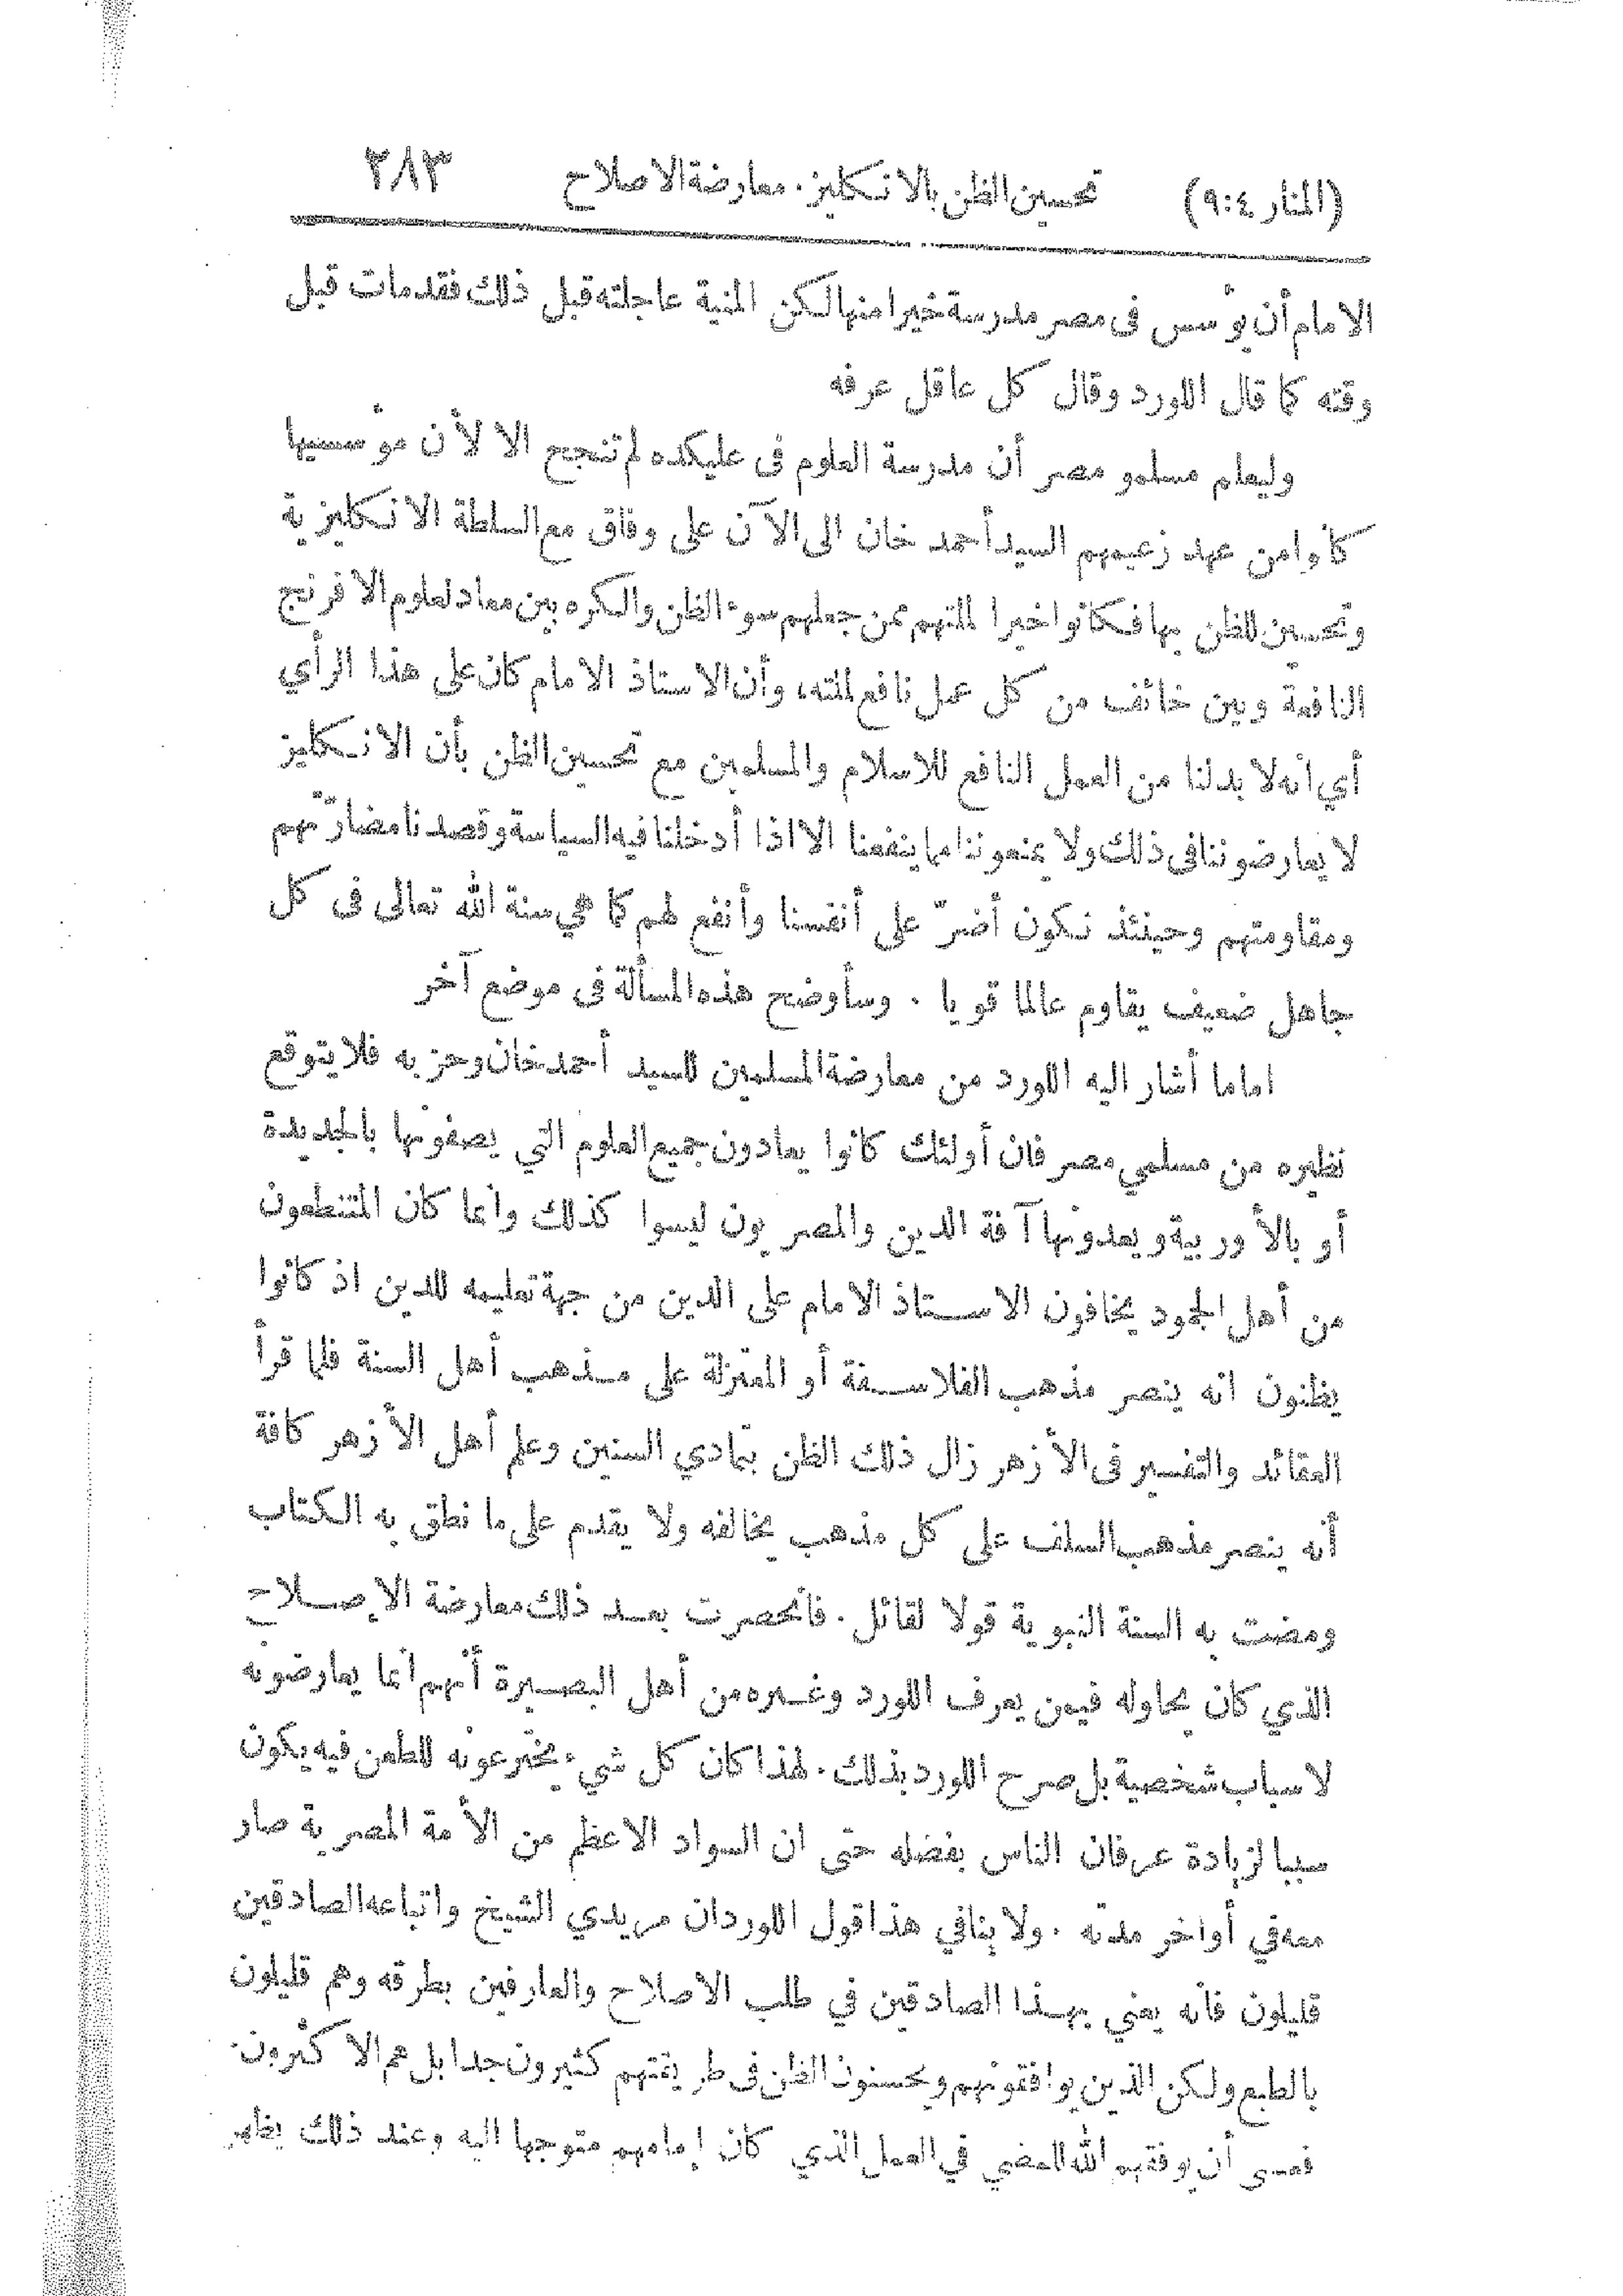 (المنار ٤:٩) تحسين الظن بالانكليز. معارضة الاصلاح ٢٨٣
الامام أن يؤسس فى مصر مدرسة خيرا منها لكن المنية عاجلته قبل ذلك فقد مات قبل
وقته كما قال اللورد وقال كل عاقل عرفه
وليعلم مسلمو مصر أن مدرسة العلوم فى عليكده لم تنجح الا لأن مؤسسيها
كانوا من عهد زعيمهم السيد أحمد خان الى الآن على وفاق مع السلطة الانكليزية
وتحسين للظن بها فكانوا خيرا لملتهم ممن جعلهم سوء الظن والكره بين معاد لعلوم الافرنج
النافعة وبين خائف من كل عمل نافع لملته، وأن الاستاذ الامام كان على هذا الرأي
أي انه لا بد لنا من العمل النافع للاسلام والمسلمين مع تحسين الظن بأن الانكليز
لا يعارضوننا فى ذلك ولا يمنعوننا مما ينفعنا الا اذا أدخلنا فيه السياسة وقصدنا مضارّتهم
ومقاومتهم وحينئذ نكون أضرّ على أنفسنا وأنفع لهم كما هي سنة الله تعالى فى كل
جاهل ضعيف يقاوم عالما قويا . وسأوضح هذه المسألة فى موضع آخر
اما ما أشار اليه اللورد من معارضة المسلمين للسيد أحمد خان وحزبه فلا يتوقع
نظيره من مسلمي مصر فان أولئك كانوا يعادون جميع العلوم التي يصفونها بالجديدة
أو بالأوربية ويعدونها آفة الدين والمصريون ليسوا كذلك وانما كان المتنطعون
من أهل الجمود يخافون الاستاذ الامام على الدين من جهة تعليمه للدين اذ كانوا
يظنون انه ينصر مذهب الفلاسفة أو المعتزلة على مذهب أهل السنة فلما قرأ
العقائد والتفسير فى الأزهر زال ذلك الظن بتمادي السنين وعلم أهل الأزهر كافة
أنه ينصر مذهب السلف على كل مذهب يخالفه ولا يقدم على ما نطق به الكتاب
ومضت به السنة النبوية قولا لقائل. فانحصرت بعد ذلك معارضة الإصلاح
الذي كان يحاوله فيمن يعرف اللورد وغيره من أهل البصيرة أنهم انما يعارضونه
لاسباب شخصية بل صرح اللورد بذلك. لهذا كان كل شيء يخترعونه للطعن فيه يكون
سببا لزيادة عرفان الناس بفضله حتى ان السواد الاعظم من الأمة المصرية صار
معه في أواخر مدته . ولا ينافي هذا قول اللورد ان مريدي الشيخ واتباعه الصادقين
قليلون فانه يعني بهذا الصادقين في طلب الاصلاح والعارفين بطرقه وهم قليلون
بالطبع ولكن الذين يوافقونهم ويحسنون الظن فى طريقتهم كثيرون جدا بل هم الاكثرون.
فعسى أن يوفقهم الله للمضي في العمل الذي كان إمامهم متوجها اليه وعند ذلك يظهر